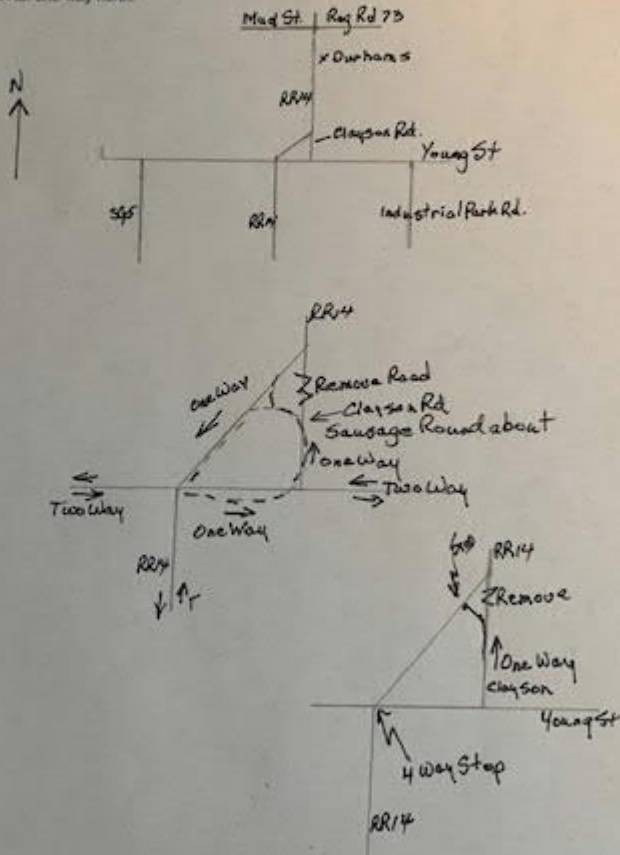 Mud St. Reg Rd 73
x Durhams
N
RR14
Clayson Rd.
Young St
RR14
Industrial Park Rd.
RR14
One Way
Remove Road
Clayson Rd
Sausage Roundabout
One Way
Two Way
Two Way
One Way
RR14
RR14
Remove
One Way
Clayson
Young St
4 Way Stop
RR14